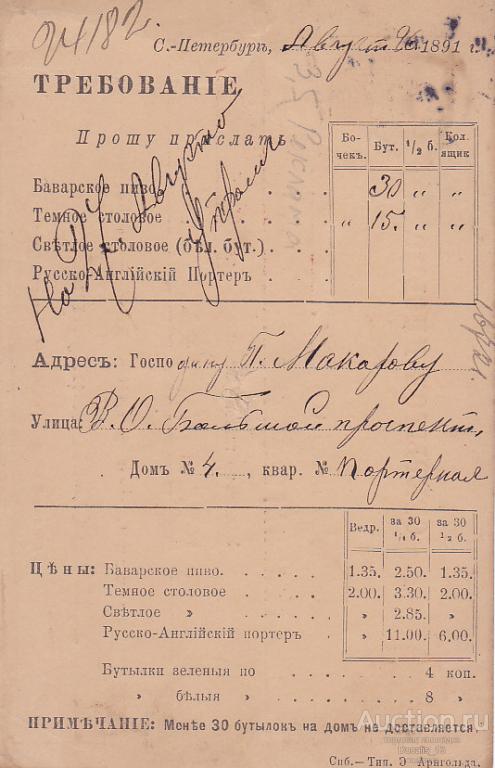 24182.
С.-Петербургъ, Августъ 26 1891 г.
ТРЕБОВАНІЕ
Прошу прислать
Бо-чекъ. Бут. 1/2 б. Кол. ящик
Баварское пиво 30 " "
Темное столовое " 15. " "
Свѣтлое столовое (бѣл. бут.)
Русско-Англійскій Портеръ
На 27 Августа
Утромъ
Адресъ: Господину П. Макарову
Улица: В. О. Большой проспектъ,
Домъ № 4. , квар. № Портерная
Ведр. за 30 1/1 б. за 30 1/2 б.
Цѣны: Баварское пиво. 1.35. 2.50. 1.35.
Темное столовое 2.00. 3.30. 2.00.
Свѣтлое » » 2.85. »
Русско-Англійскій портеръ » 11.00. 6.00.
Бутылки зеленыя по 4 коп.
» бѣлыя » 8 »
ПРИМѢЧАНІЕ: Менѣе 30 бутылокъ на домъ не доставляется.
Спб.-Тип. Э Арнгольда.
Auction.ru